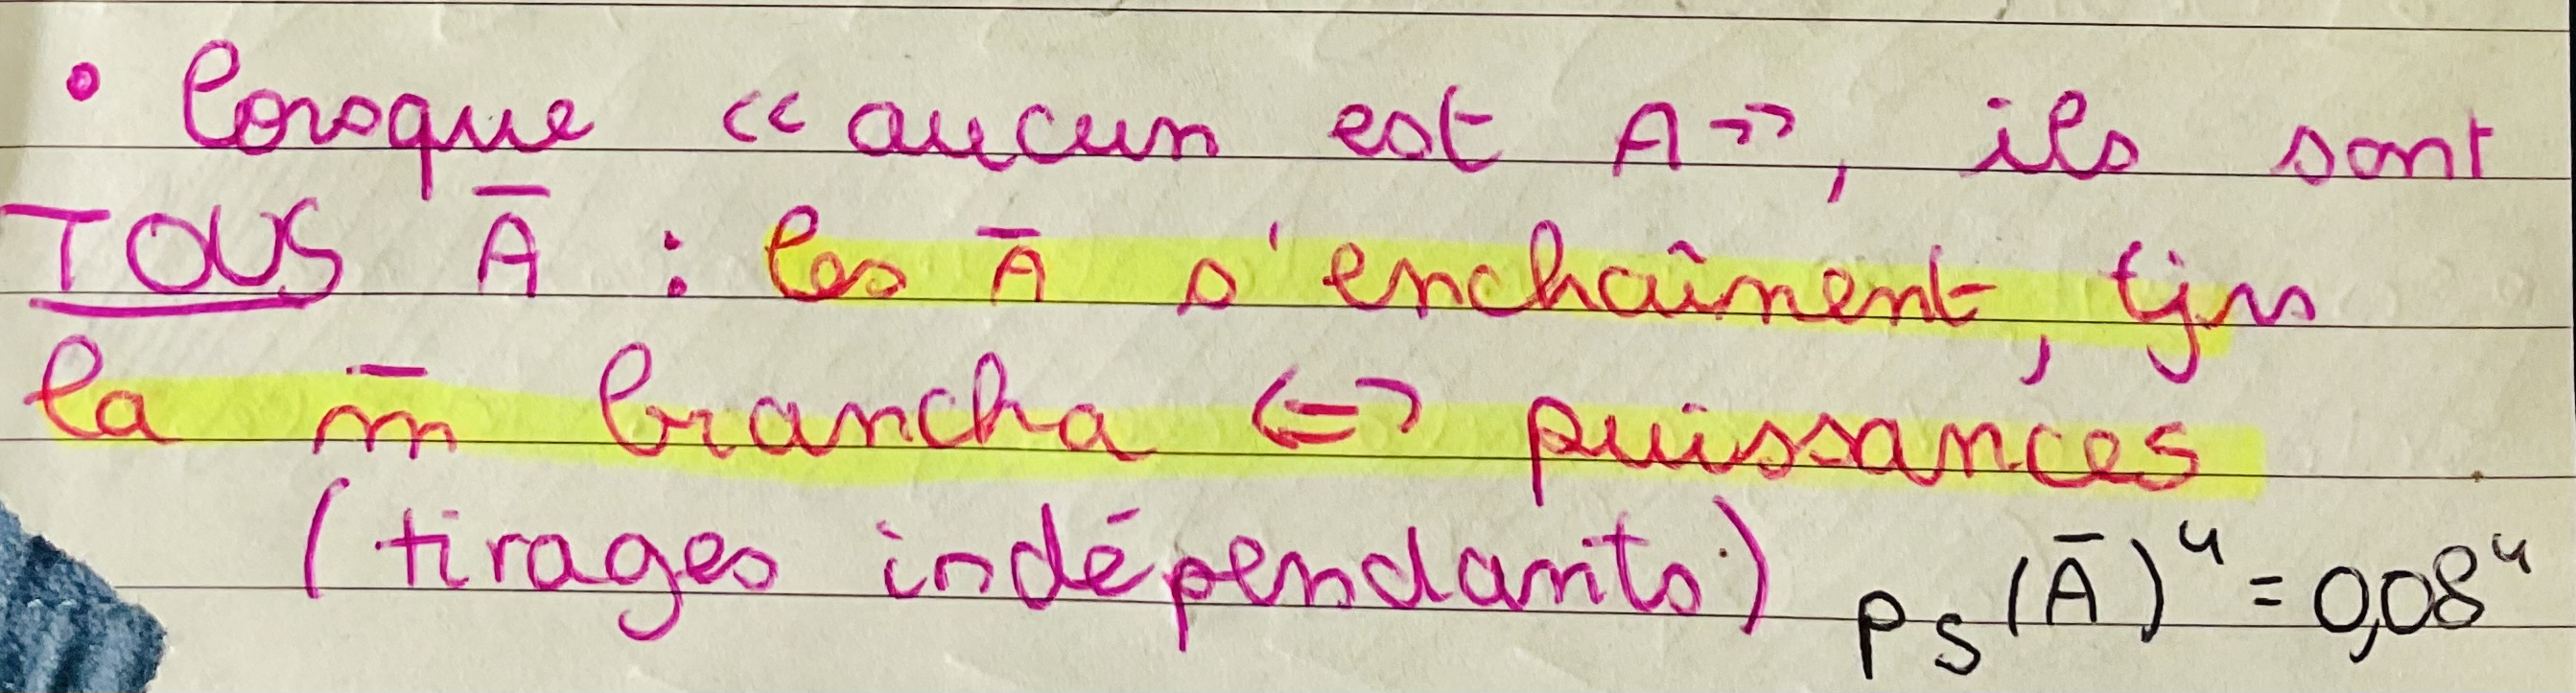 • lorsque « aucun est A », ils sont
TOUS Ā : les Ā s'enchaînent, tjrs
la m̄ brancha <=> puissances
(tirages indépendants) pS(Ā)⁴ = 0,08⁴